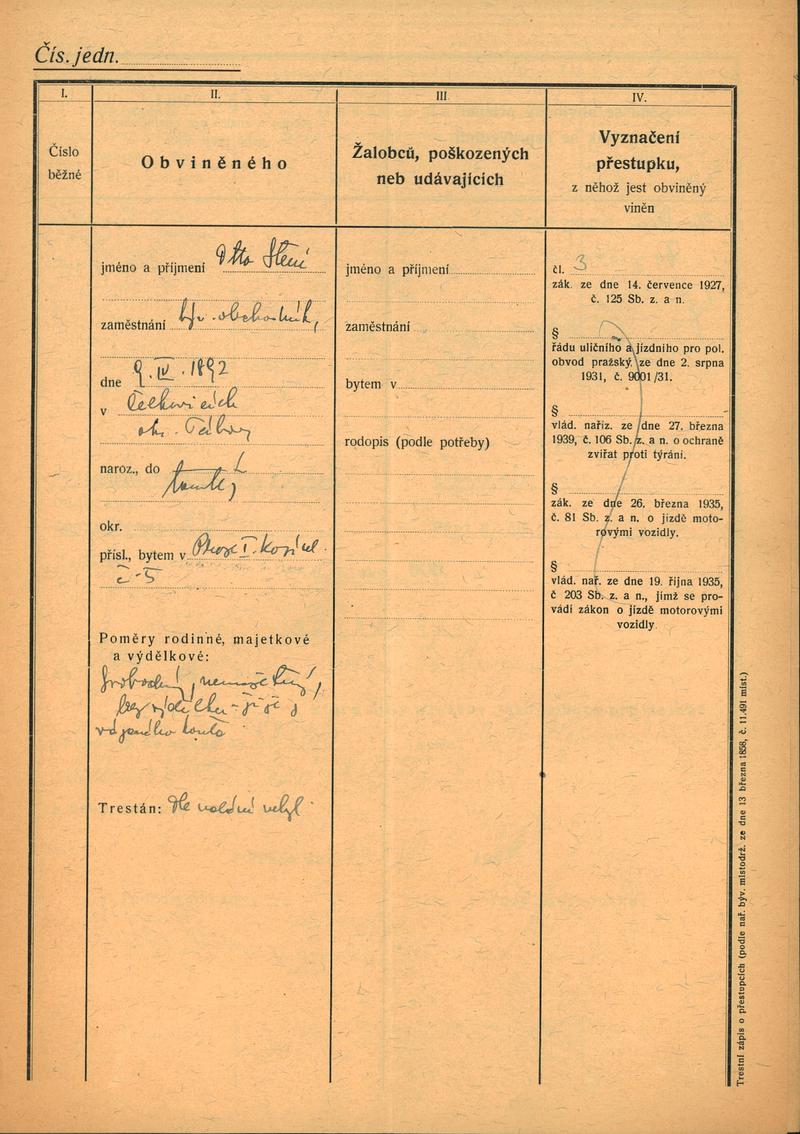 Čís. jedn.
I.
II.
III.
IV.
Číslo
běžné
Obviněného
Žalobců, poškozených
neb udávajících
Vyznačení
přestupku,
z něhož jest obviněný
viněn
jméno a příjmení Otto
zaměstnání býv. obchodník,
dne 9. IV. 1892
v
okr. Tábor
naroz., do
okr.
přísl., bytem v Praze I.
č. 5
Poměry rodinné, majetkové
a výdělkové:
svobodný, nemajetný,
bez výdělku - žije z
vázaného konta
Trestán: Dle
jméno a příjmení
zaměstnání
bytem v
rodopis (podle potřeby)
čl. 3
zák. ze dne 14. července 1927,
č. 125 Sb. z. a n.
§
řádu uličního a jízdního pro pol.
obvod pražský ze dne 2. srpna
1931, č. 9001/31.
§
vlád. naříz. ze dne 27. března
1939, č. 106 Sb. z. a n. o ochraně
zvířat proti týrání.
§
zák. ze dne 26. března 1935,
č. 81 Sb. z. a n. o jízdě moto-
rovými vozidly.
§
vlád. nař. ze dne 19. října 1935,
č 203 Sb. z. a n., jímž se pro-
vádí zákon o jízdě motorovými
vozidly
Trestní zápis o přestupcích (podle nař. býv. místodrž. ze dne 13 března 1858, č. 11.491 míst.)